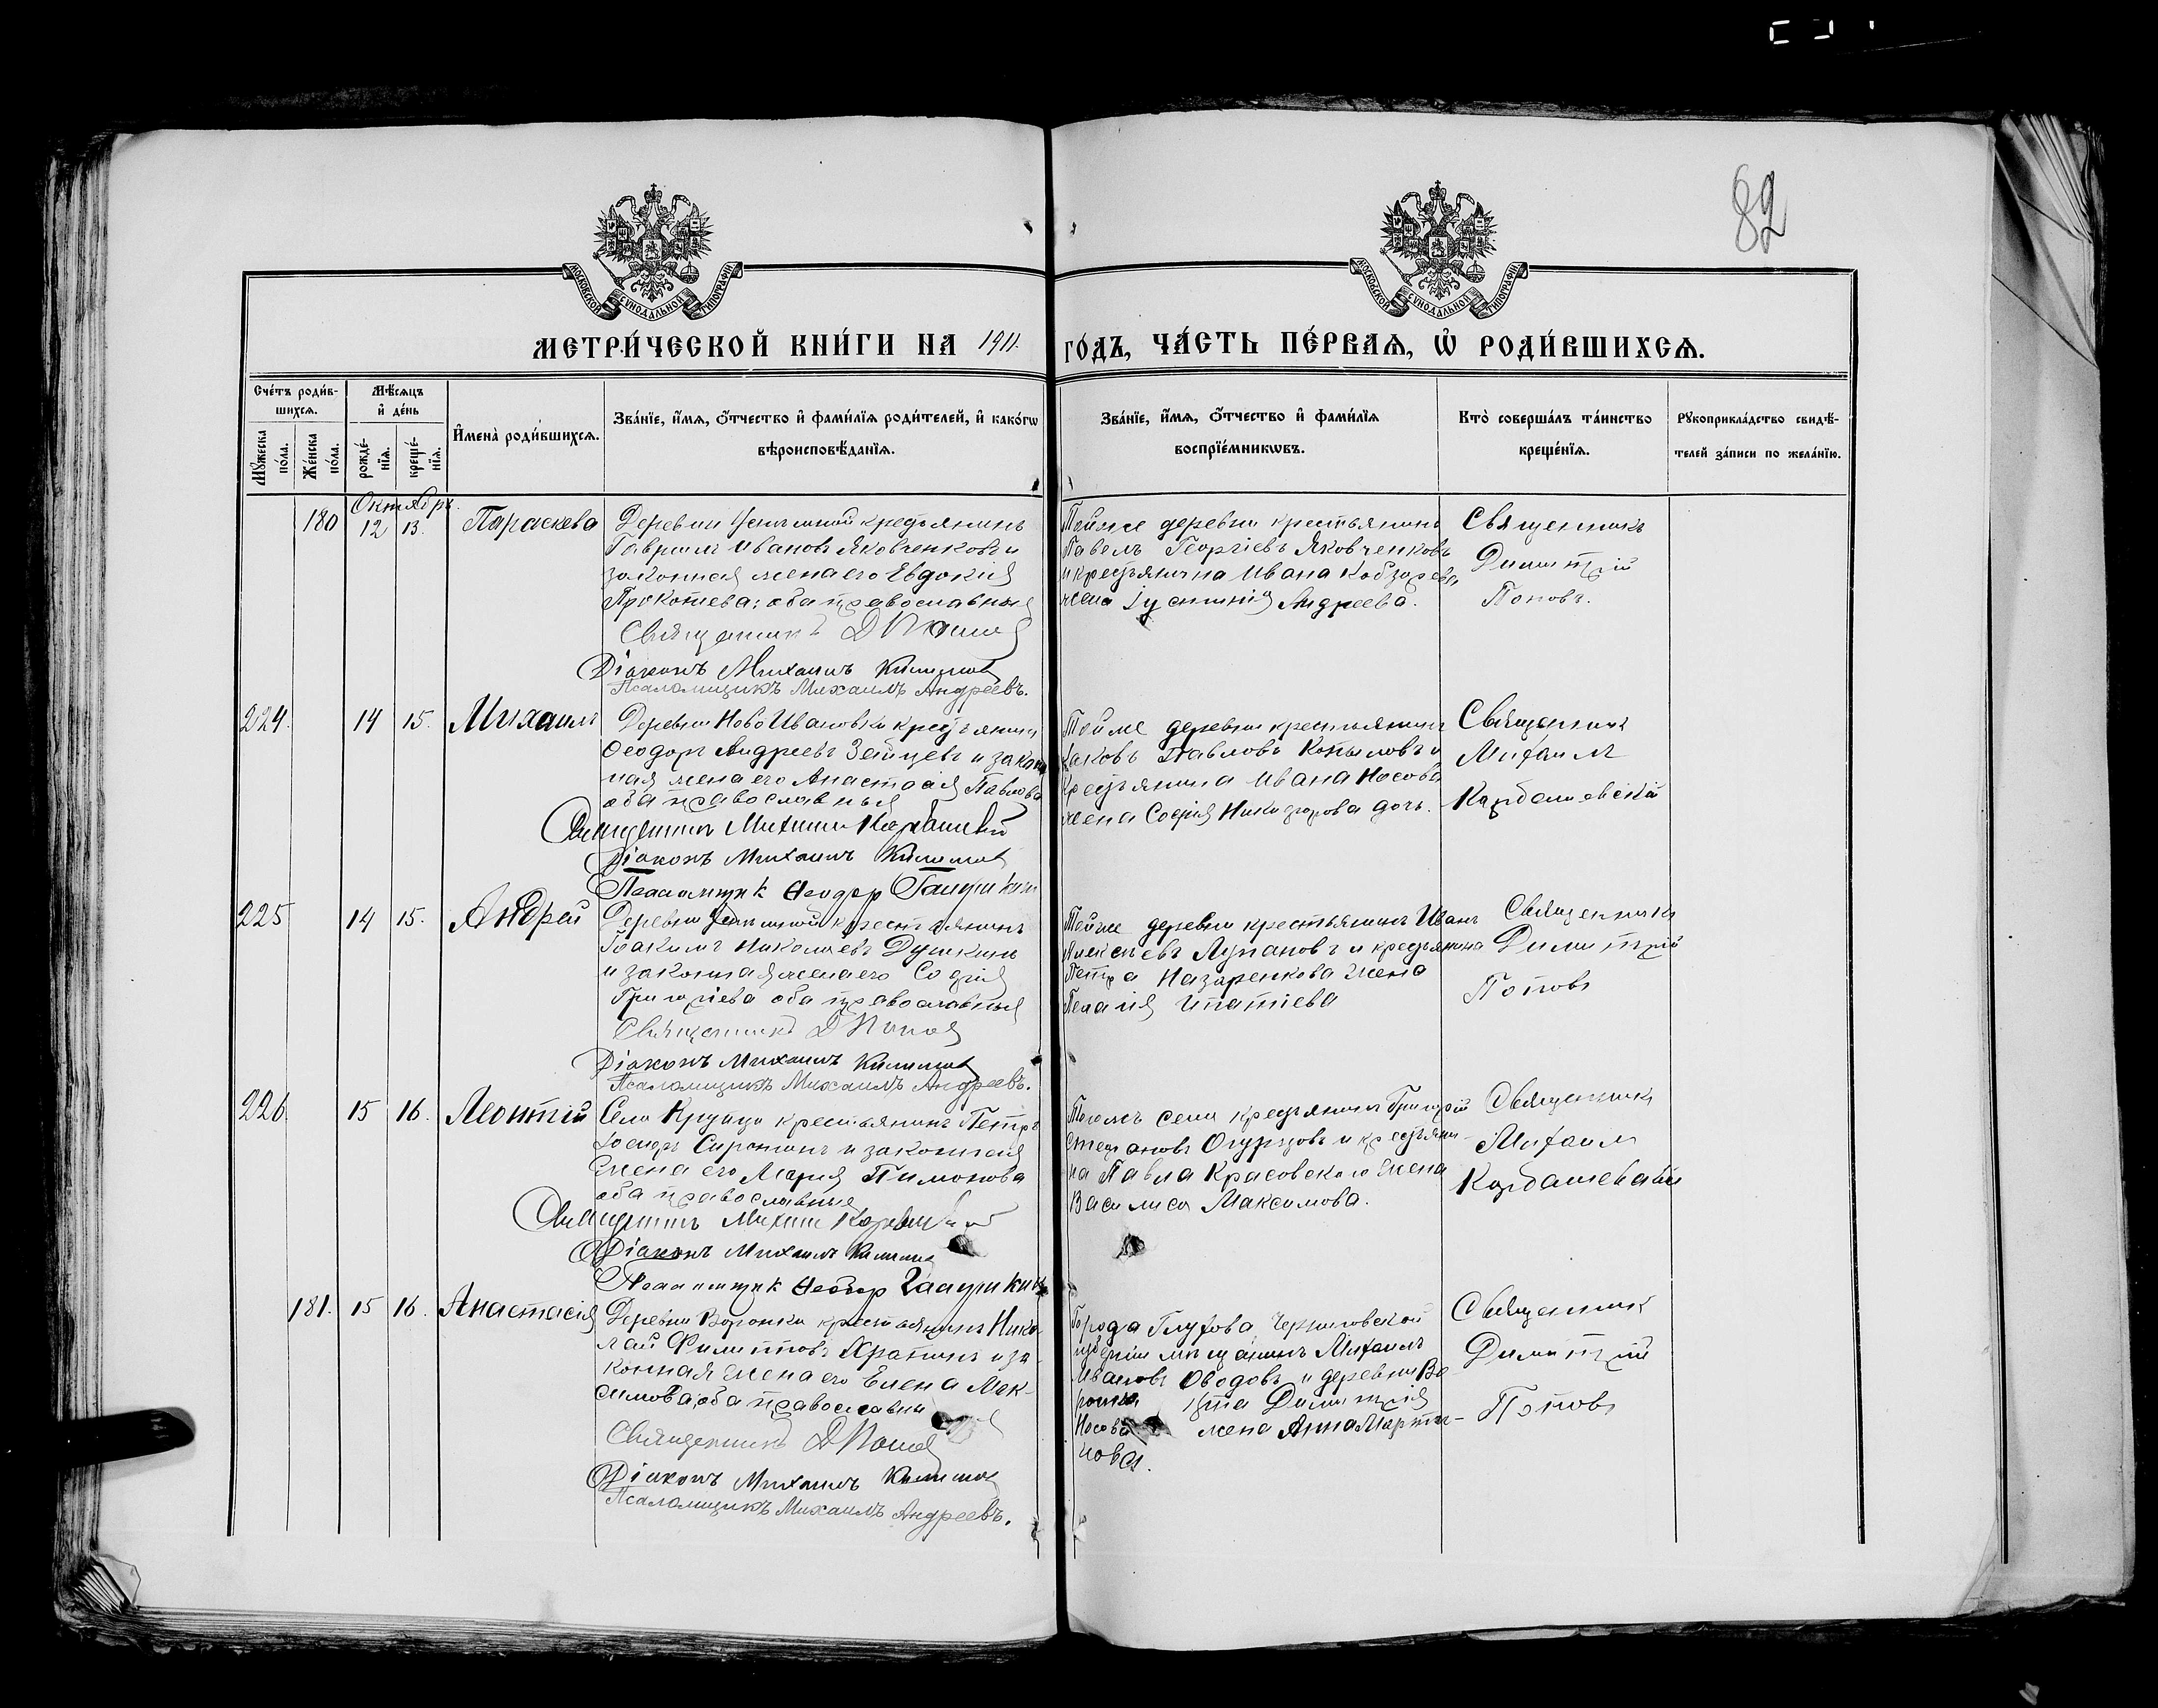 82
МОСКОВСКОЙ СѴНОДАЛЬНОЙ ТИПОГРАФІИ
МОСКОВСКОЙ СѴНОДАЛЬНОЙ ТИПОГРАФІИ
МЕТРИ́ЧЕСКОЙ КНИ́ГИ НА 1911. ГО́ДЪ, ЧА́СТЬ ПЕ́РВАѦ, Ѡ҆ РОДИ́ВШИХСѦ.
Сче́тъ роди́в-
шихсѧ.
Мꙋ́жеска по́ла.
Же́нска по́ла.
Мѣ́сѧцъ
и҆ де́нь
рожде́-нїѧ.
креще́-нїѧ.
И҆мена̀ роди́вшихсѧ.
Зва́нїе, и҆́мѧ, ѻ҆́тчество и҆ фами́лїѧ роди́телей, и҆ како́гѡ
вѣроисповѣ́данїѧ.
Зва́нїе, и҆́мѧ, ѻ҆́тчество и҆ фами́лїѧ
воспрїе́мникѡвъ.
Кто̀ соверша́лъ та́инство
креще́нїѧ.
Рꙋкоприкла́дство свидѣ́-
телей за́писи по жела́нїю.
Октябрь.
180 12 13. Параскева
Деревни крестьянинъ
Гавріилъ Ивановъ Яковченковъ и
законная жена его Евдокія
Прокопіева; оба православныя
Священникъ Д Попов
Діаконъ Михаилъ
Псаломщикъ Михаилъ Андреевъ.
Тойже деревни крестьянинъ
Павелъ Георгіевъ Яковченковъ
и крестьянина Ивана Кобзарева
жена Андреева.
Священникъ
Димитрій
Поповъ.
224. 14 15. Михаилъ
Деревни НовоИвановки крестьянинъ
Ѳеодоръ Андреевъ Зайцевъ и закон
ная жена его Анастасія Павлова
оба православныя
Священникъ Михаилъ
Діаконъ Михаилъ
Псаломщик Ѳеодор
Тойже деревни крестьянинъ
Іаковъ Павловъ Копыловъ и
крестьянина Ивана Носова
жена Софія Никифорова дочь.
Священникъ
Михаилъ
225 14 15. Андрей
Деревни крестьянинъ
Іоакимъ Николаевъ Душкинъ
и законная жена его Софія
Григоріева оба православныя
Священникъ Д Попов
Діаконъ Михаилъ
Псаломщикъ Михаилъ Андреевъ.
Тойже деревни крестьянинъ Иванъ
Алексѣевъ Лупановъ и крестьянина
Петра Назаренкова жена
Пелагія Ипатіева
Священникъ
Димитрій
Поповъ
226. 15 16. Леонтій
Села Крупца крестьянинъ Петръ
Іосифъ Сиротинъ и законная
жена его Марія Пимонова
оба православныя
Священникъ Михаилъ
Діаконъ Михаилъ
Псаломщик Ѳеодор
Тогожъ села крестьянинъ Григорій
Стефановъ Огурцовъ и крестьяни-
на Павла Красовскаго жена
Василиса Максимова.
Священникъ
Михаилъ
181. 15 16. Анастасія
Деревни Воронки крестьянинъ Нико-
лай Филипповъ Храпинъ и за-
конная жена его Елена Мак-
симова, оба православны
Священникъ Д Попов
Діаконъ Михаилъ
Псаломщикъ Михаилъ Андреевъ.
Города Глухова Черниговской
губерніи мѣщанинъ Михаилъ
Ивановъ Оводовъ и деревни Во
Димитрія
Носова жена Анна Марти-
нова.
Священникъ
Димитрій
Поповъ